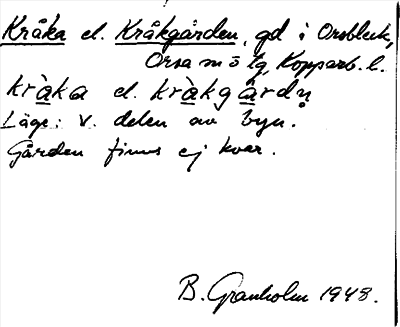 Kråka el. Kråkgården, gd i Orsbleck,
Orsa sn o tg, Kopparb. l.
kràka el. kràkgårdn̥.
Läge: V. delen av byn.
Gården finns ej kvar.
B. Granholm 1948.